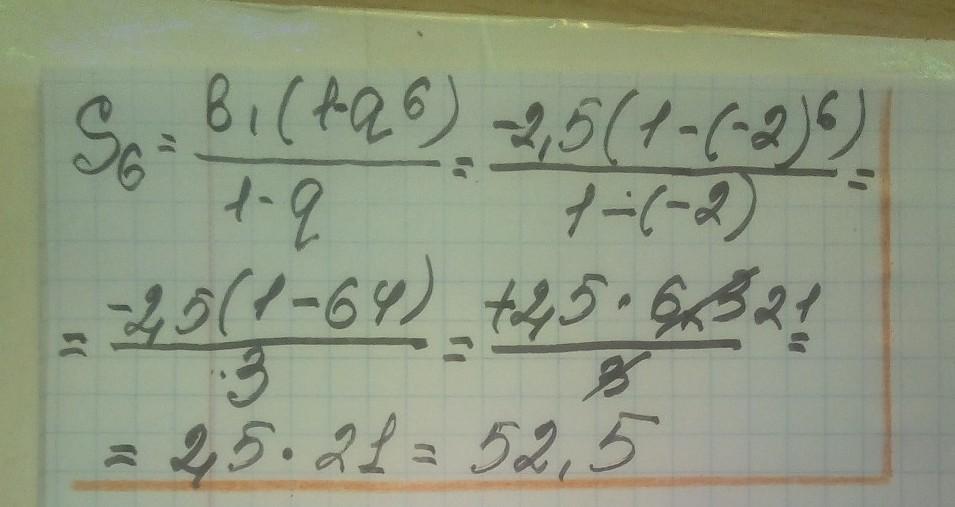 S₆ = b₁(1-q⁶)/(1-q) = -2,5(1-(-2)⁶)/(1-(-2)) =
= -2,5(1-64)/3 = +2,5·63 21/3 =
= 2,5·21 = 52,5